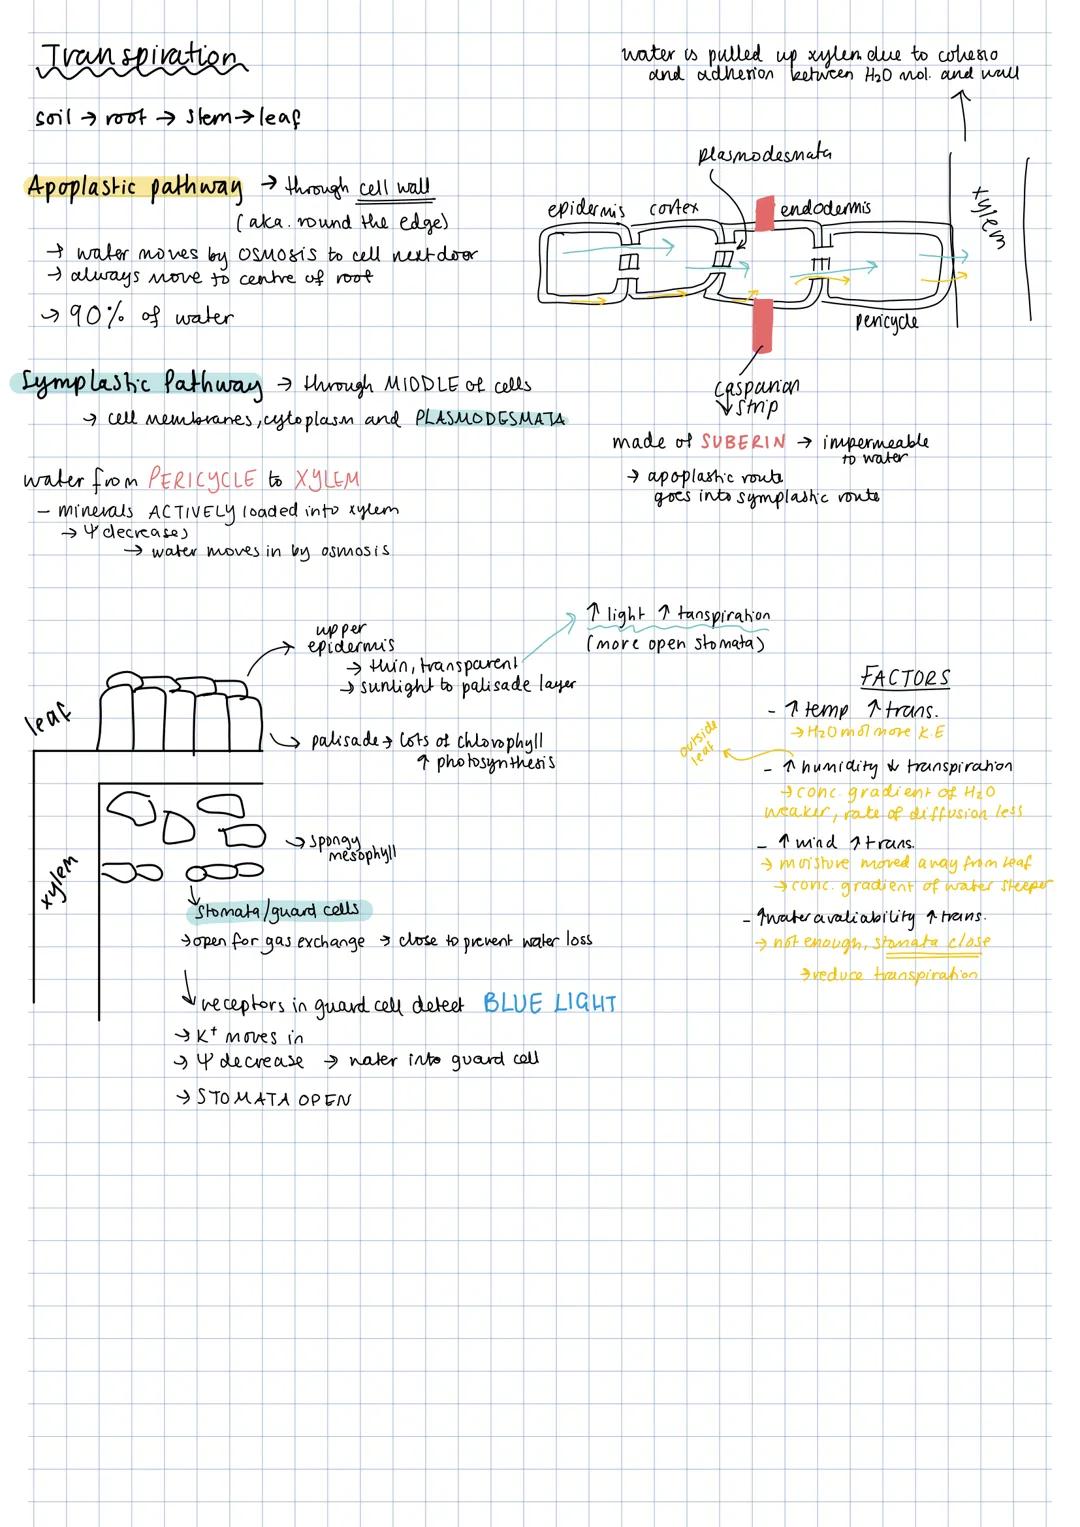 Transpiration
soil → root → stem → leaf
water is pulled up xylem due to cohesio
and adhesion between H₂O mol. and wall
Apoplastic pathway → through cell wall
(aka. round the edge)
→ water moves by OSMOSIS to cell next door
→ always move to centre of root
→ 90% of water
plasmodesmata
epidermis cortex endodermis
xylem
pericycle
casparian
strip
made of SUBERIN → impermeable
to water
→ apoplastic route
goes into symplastic route
Symplastic Pathway → through MIDDLE of cells
→ cell membranes, cytoplasm and PLASMODESMATA
water from PERICYCLE to XYLEM
- minerals ACTIVELY loaded into xylem
→ Ψ decreases
→ water moves in by osmosis
leaf
xylem
upper
epidermis
→ thin, transparent
→ sunlight to palisade layer
↑ light ↑ tanspiration
(more open stomata)
palisade → lots of chlorophyll
↑ photosynthesis
→ spongy
mesophyll
stomata/guard cells
→ open for gas exchange → close to prevent water loss
receptors in guard cell detect BLUE LIGHT
→ K⁺ moves in
→ Ψ decrease → water into guard cell
→ STOMATA OPEN
FACTORS
- ↑ temp ↑ trans.
→ H₂O mol more K.E
outside
leaf
- ↑ humidity ↓ transpiration
→ conc. gradient of H₂O
weaker, rate of diffusion less
- ↑ wind ↑ trans.
→ moisture moved away from leaf
→ conc. gradient of water steeper
- ↑ water avaliability ↑ trans.
→ not enough, stomata close
→ reduce transpiration